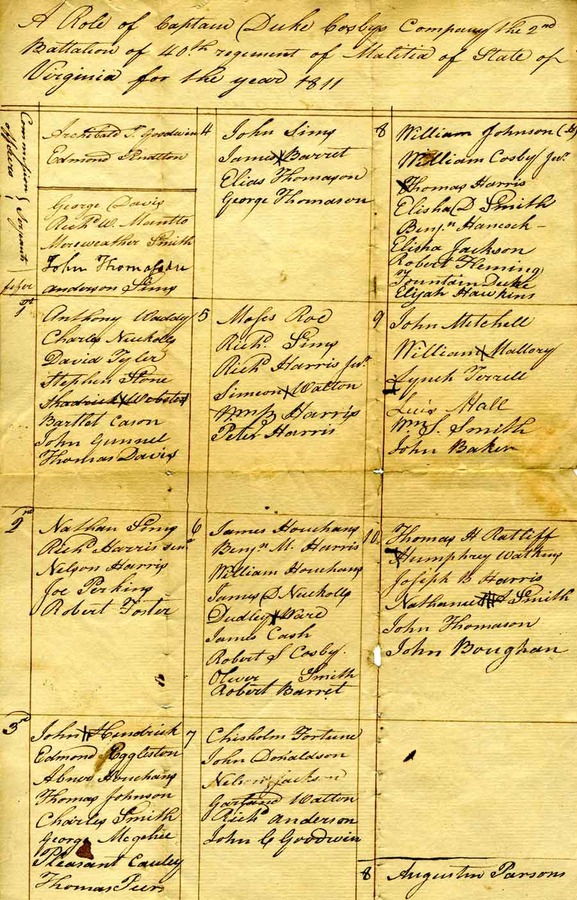 A Role of Captain Duke Cosbys Company the 2nd
Battalion of 40th regiment of Malitia of State of
Virginia for the year 1811
Commission officers & Serjeants
Archibald T. Goodwin
Edmond
George Davis
Richd W.
Moreweather Smith
John Thomason
Anderson Sims
1st
Anthony Waddy
Charles Nuckolls
David Tyler
Stephen Stone
Shadrick Webster
Bartlet Cason
John Gunnel
Thomas Davis
2nd
Nathan Sims
Richd Harris senr
Nelson Harris
Joe Perkins
Robert Foster
3rd
John Hendrick
Edmond Eggleston
Abner Houchans
Thomas Johnson
Charles Smith
George Mcgehee
Pleasant Cauley
Thomas Peers
4
John Sims
James Barret
Elias Thomason
George Thomason
5
Moses Roe
Richd Sims
Richd Harris Jur
Simeon Walton
Wm B Harris
Peter Harris
6
James Houchans
Benjn M. Harris
William Houchans
James D Nuckolls
Dudley Ware
James Cash
Robert S Cosby.
Oliver Smith
Robert Barret
7
Chisholm Fortune
John Donaldson
Nelson Jackson
Garland Walton
Richd Anderson
John G Goodwin
8
William Johnson
William Cosby Jur
Thomas Harris
Elisha D Smith
Benjn
Elisha Jackson
Robert Fleming
Fountain Duke
Elijah Hawkins
9
John Mitchell
William Mallory
Lynch Terrell
Hall
Wm S. Smith
John Baker
10
Thomas H Ratliff
Humphrey Watkins
Joseph B Harris
Nathaniel Smith
John Thomason
John Boughan
8
Augustin Parsons